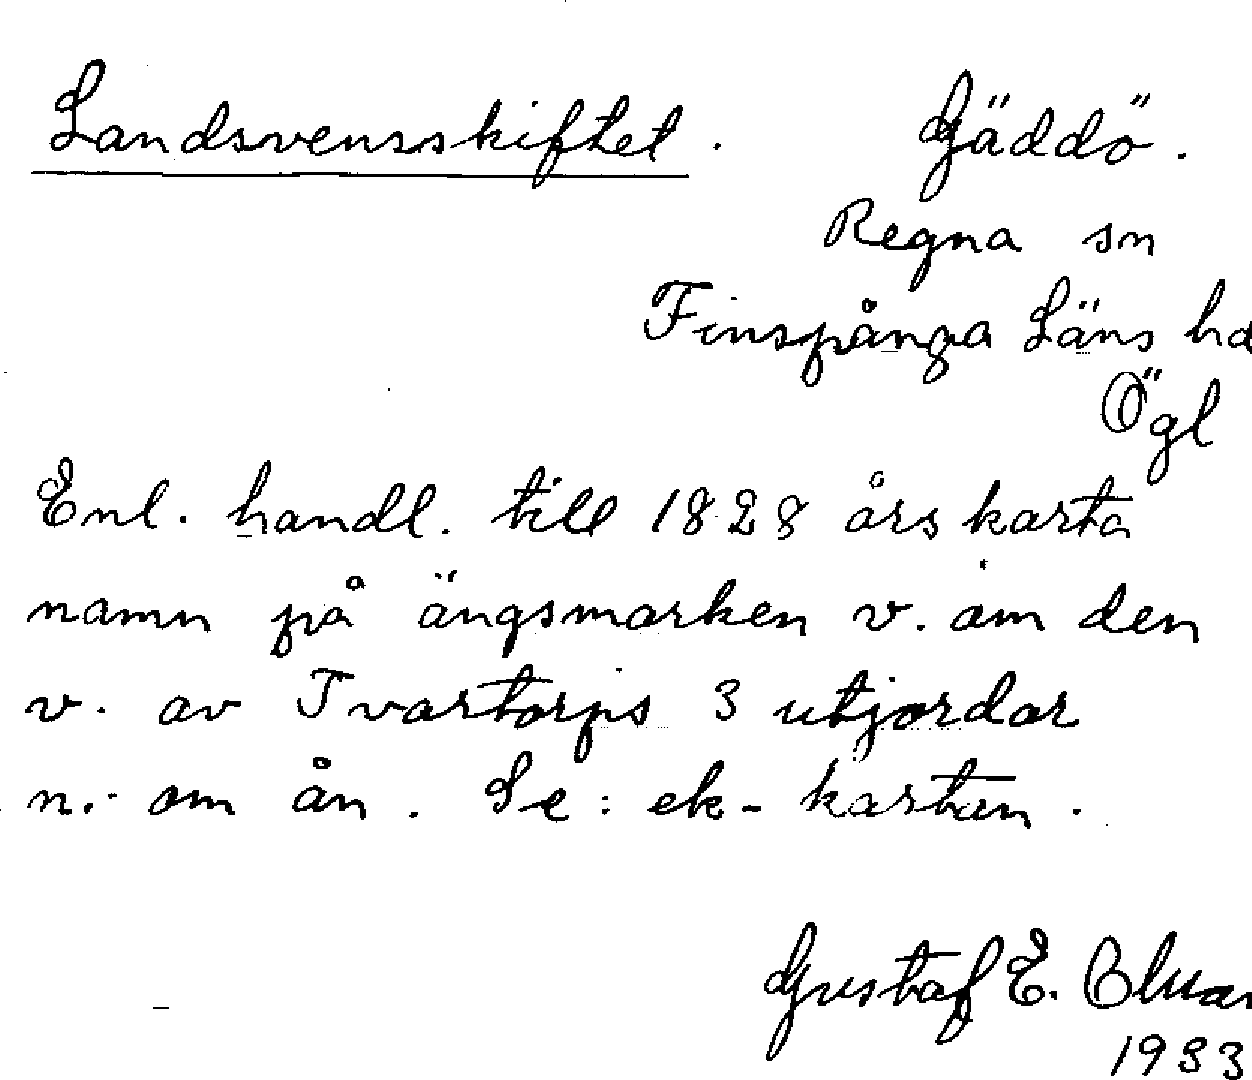 Landsvensskiftet. Gäddö.
Regna sn
Finspånga Läns hd
Ögl
Enl. handl. till 1828 års karta
namn på ängsmarken v. om den
v. av Tvartorps 3 utjordar
n. om ån. Se: ek-kartan.
Gustaf E.
1933